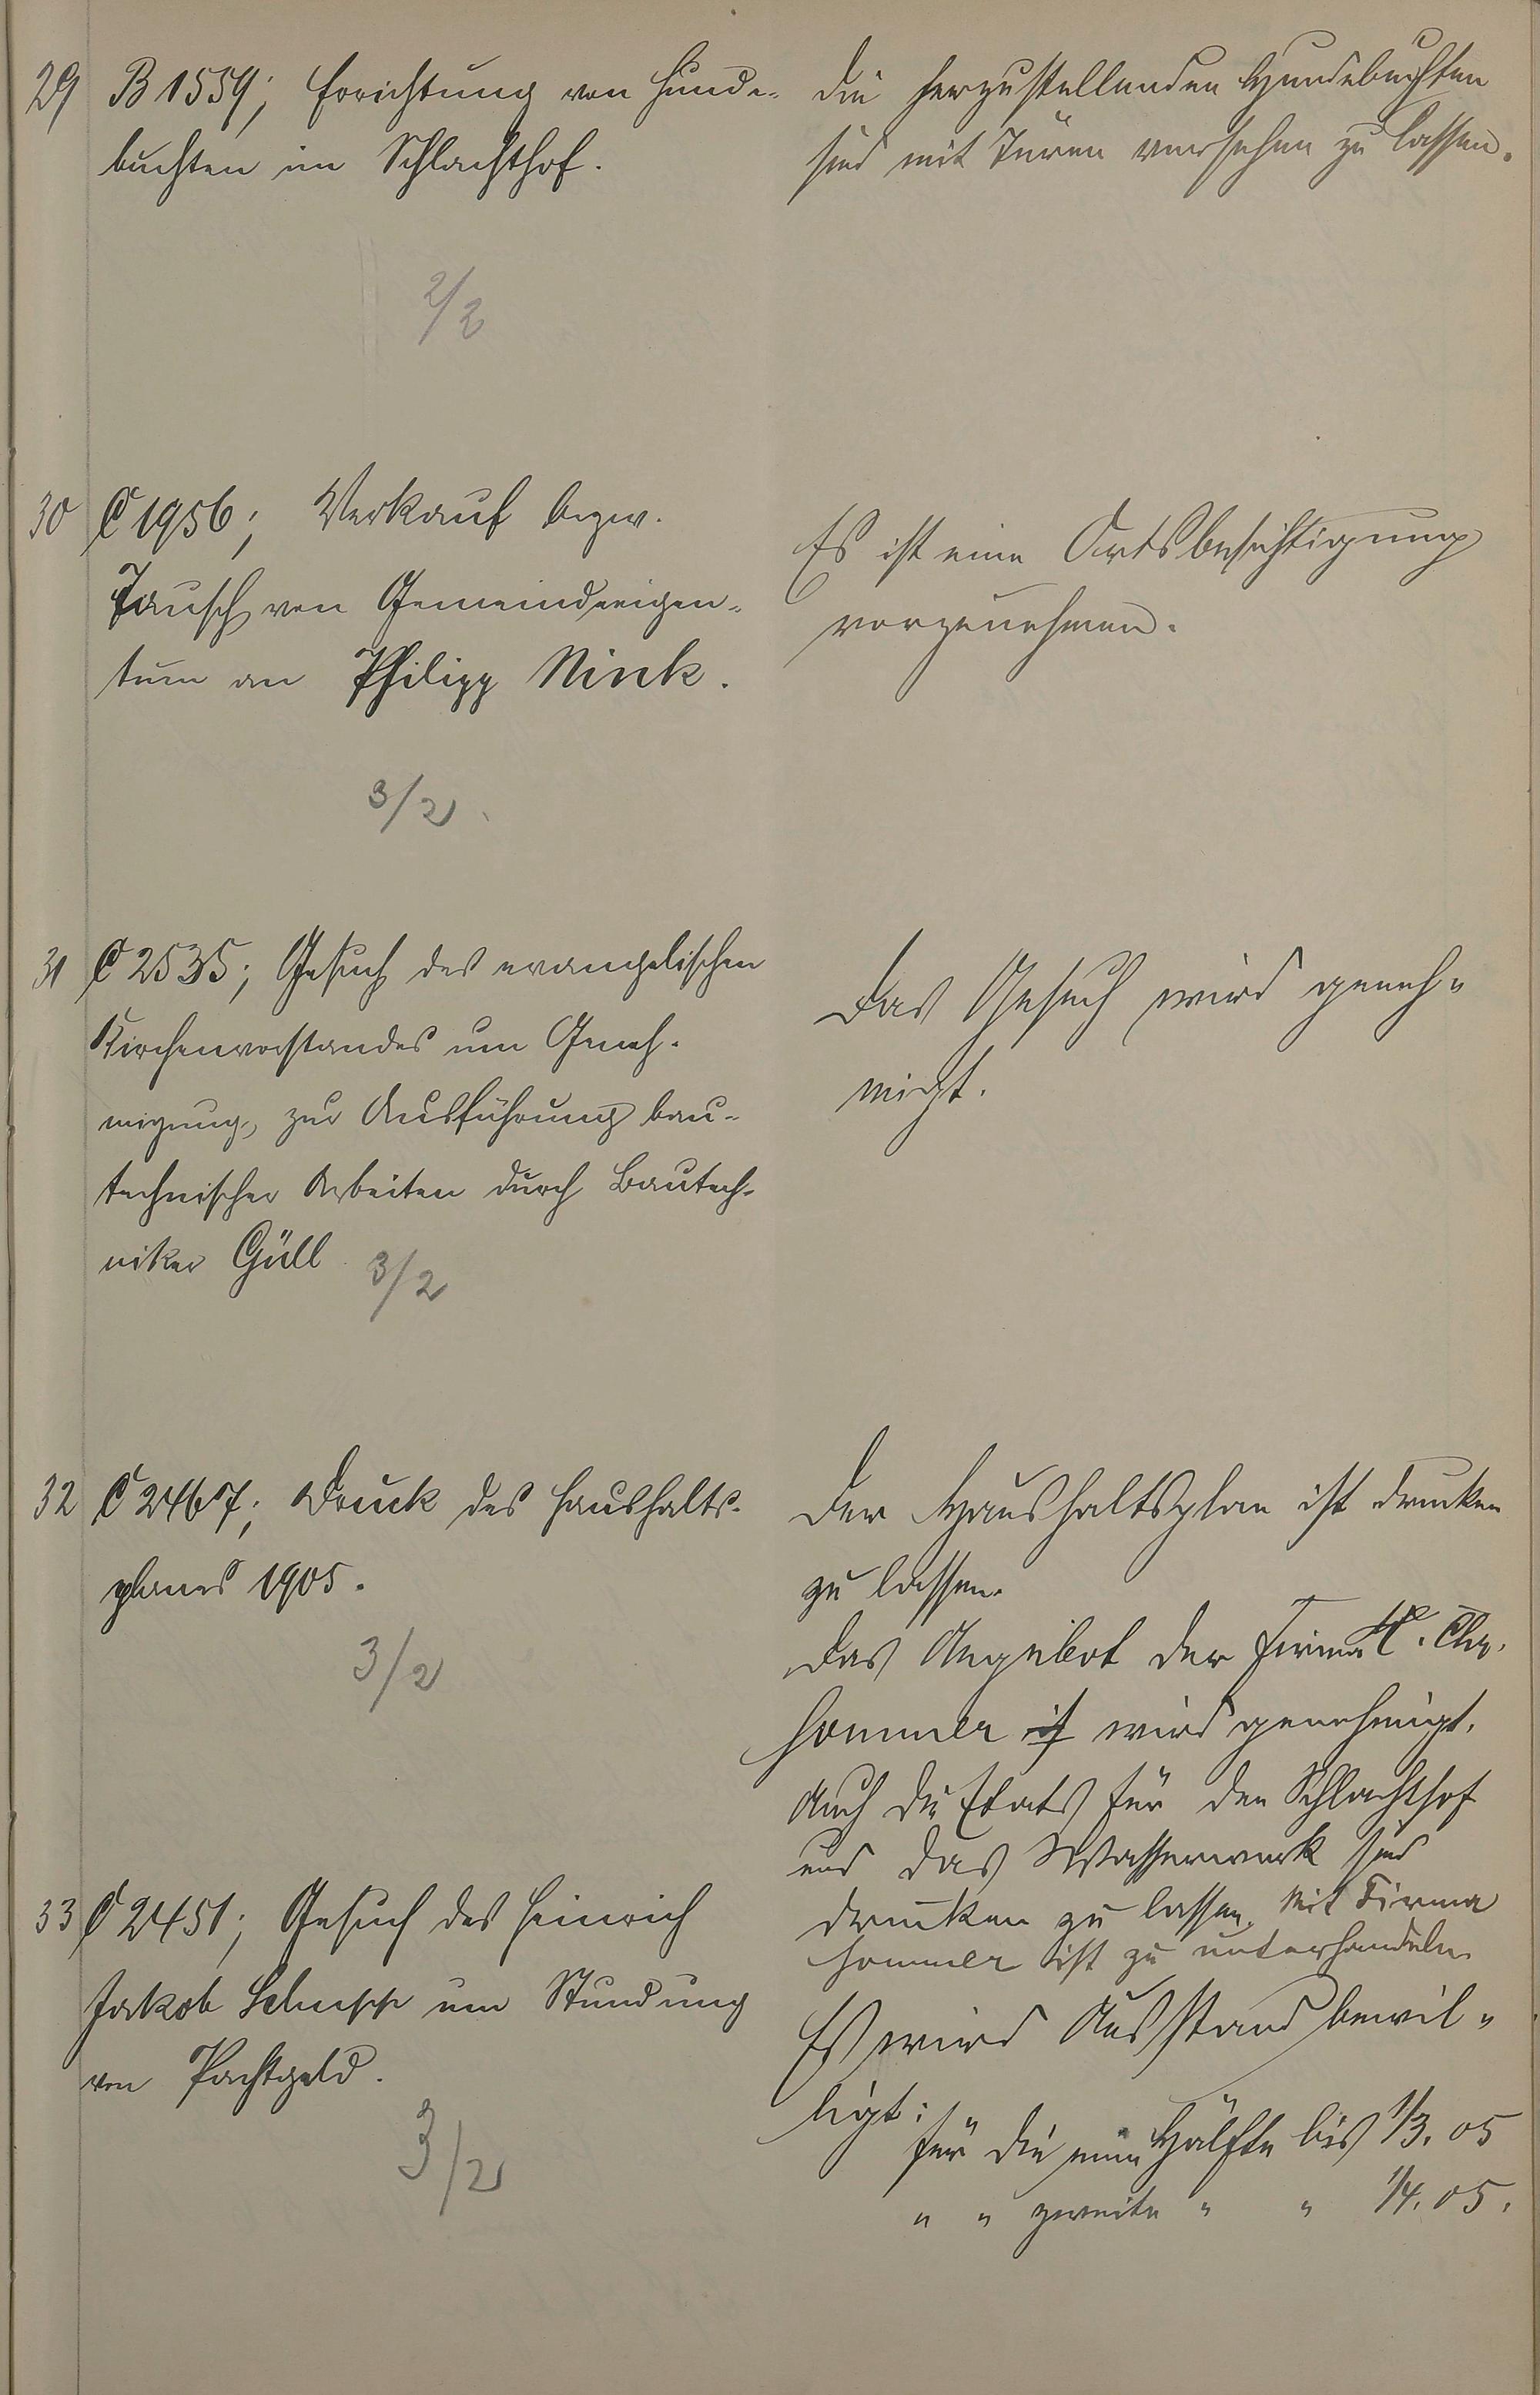 29 B 1559; Errichtung von Hunde-
buchten im Schlachthof.
2/2
Die herzustellenden Hundebuchten
sind mit Türen versehen zu lassen.
30 C 1956; Verkauf bezw.
Tausch von Gemeindeeigen-
tum an Philipp Nink.
3/2
Es ist eine Ortsbesichtigung
vorzunehmen.
31 C 2535; Gesuch des evangelischen
Kirchenvorstandes um Geneh-
migung, zur Ausführung bau-
technischer Arbeiten durch Bautech-
niker Güll
3/2
Das Gesuch wird geneh-
migt.
32 C 2467; Druck des Haushalts-
planes 1905.
3/2
Der Haushaltsplan ist drucken
zu lassen.
Das Angebot der Firma H. Chr.
Sommer ist wird genehmigt.
Auch die Etats für den Schlachthof
und das Wasserwerk sind
drucken zu lassen. Mit Firma
Sommer ist zu unterhandeln
33 C 2451; Gesuch des Heinrich
Jakob Schupp um Stundung
von Pachtgeld.
3/2
Es wird Ausstand bewil-
ligt:
für die eine Hälfte bis 1/3. 05
" " zweite " " 1/4. 05.